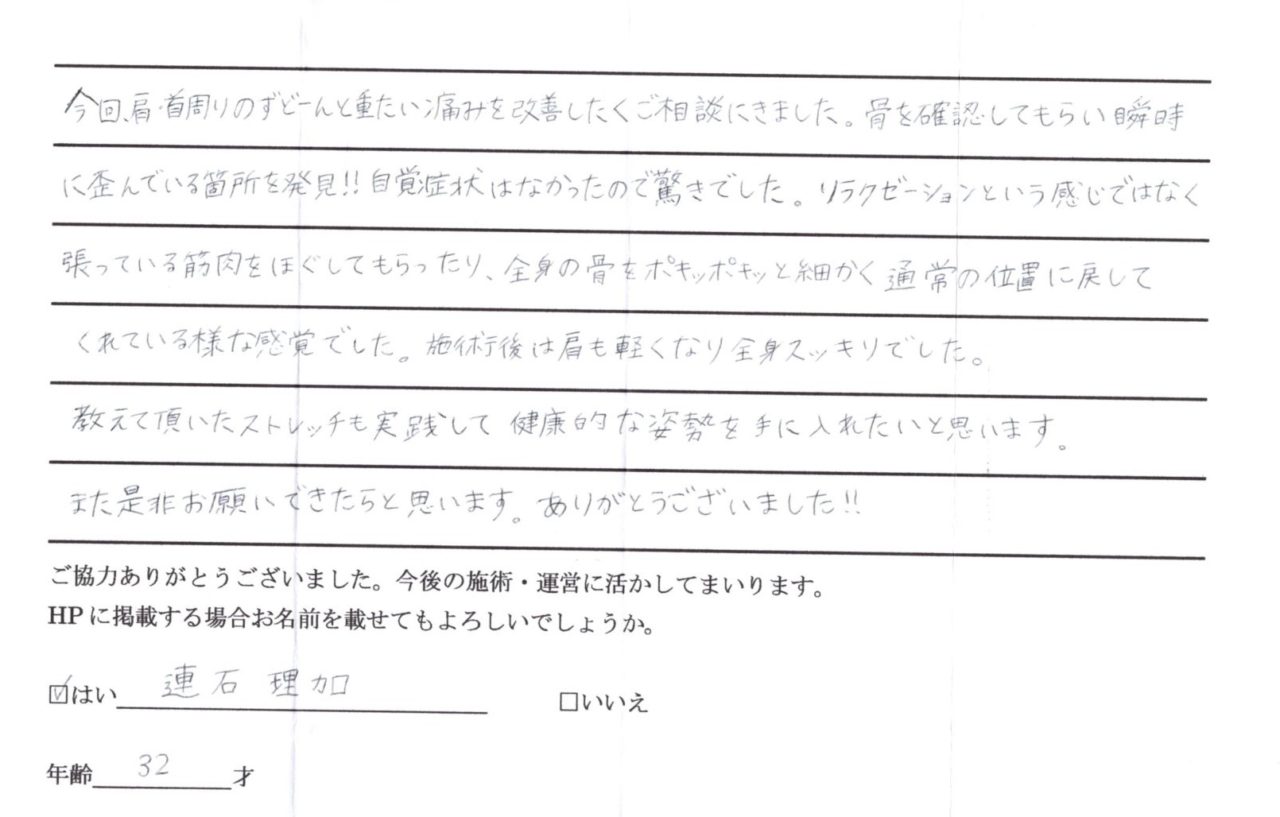 今回、肩・首周りのずどーんと重たい痛みを改善したくご相談にきました。骨を確認してもらい瞬時
に歪んでいる箇所を発見!!自覚症状はなかったので驚きでした。リラクゼーションという感じではなく
張っている筋肉をほぐしてもらったり、全身の骨をポキッポキッと細かく通常の位置に戻して
くれている様な感覚でした。施術後は肩も軽くなり全身スッキリでした。
教えて頂いたストレッチも実践して健康的な姿勢を手に入れたいと思います。
また是非お願いできたらと思います。ありがとうございました!!
ご協力ありがとうございました。今後の施術・運営に活かしてまいります。
HPに掲載する場合お名前を載せてもよろしいでしょうか。
☑はい 連石 理加 □いいえ
年齢 32 才